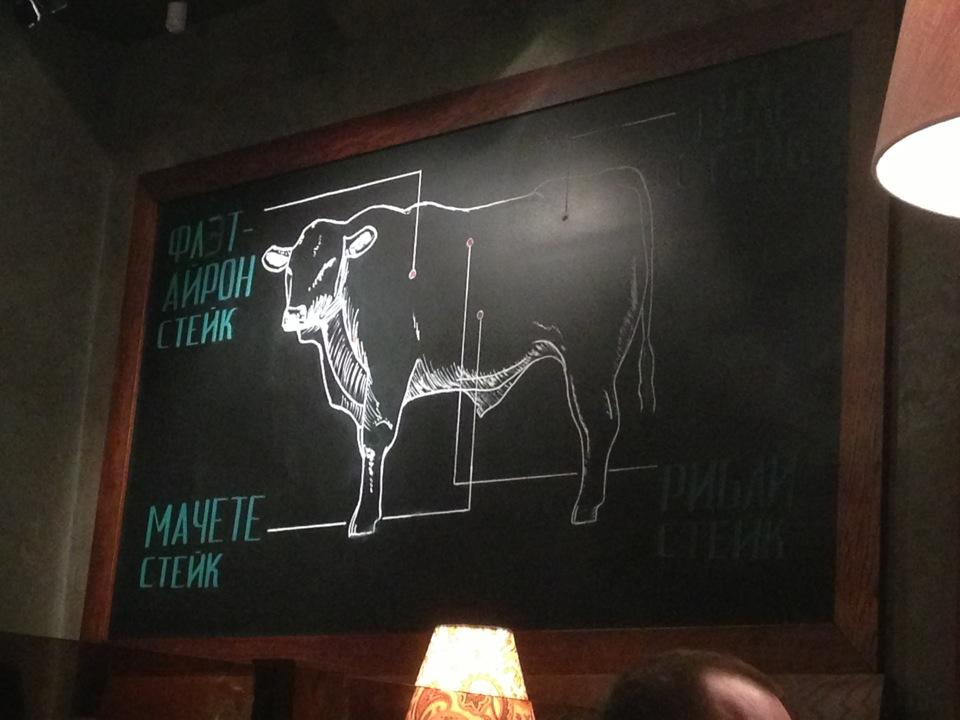 ФЛЭТ-
АЙРОН
СТЕЙК
СТЕЙК
МАЧЕТЕ
СТЕЙК
РИБАЙ
СТЕЙК